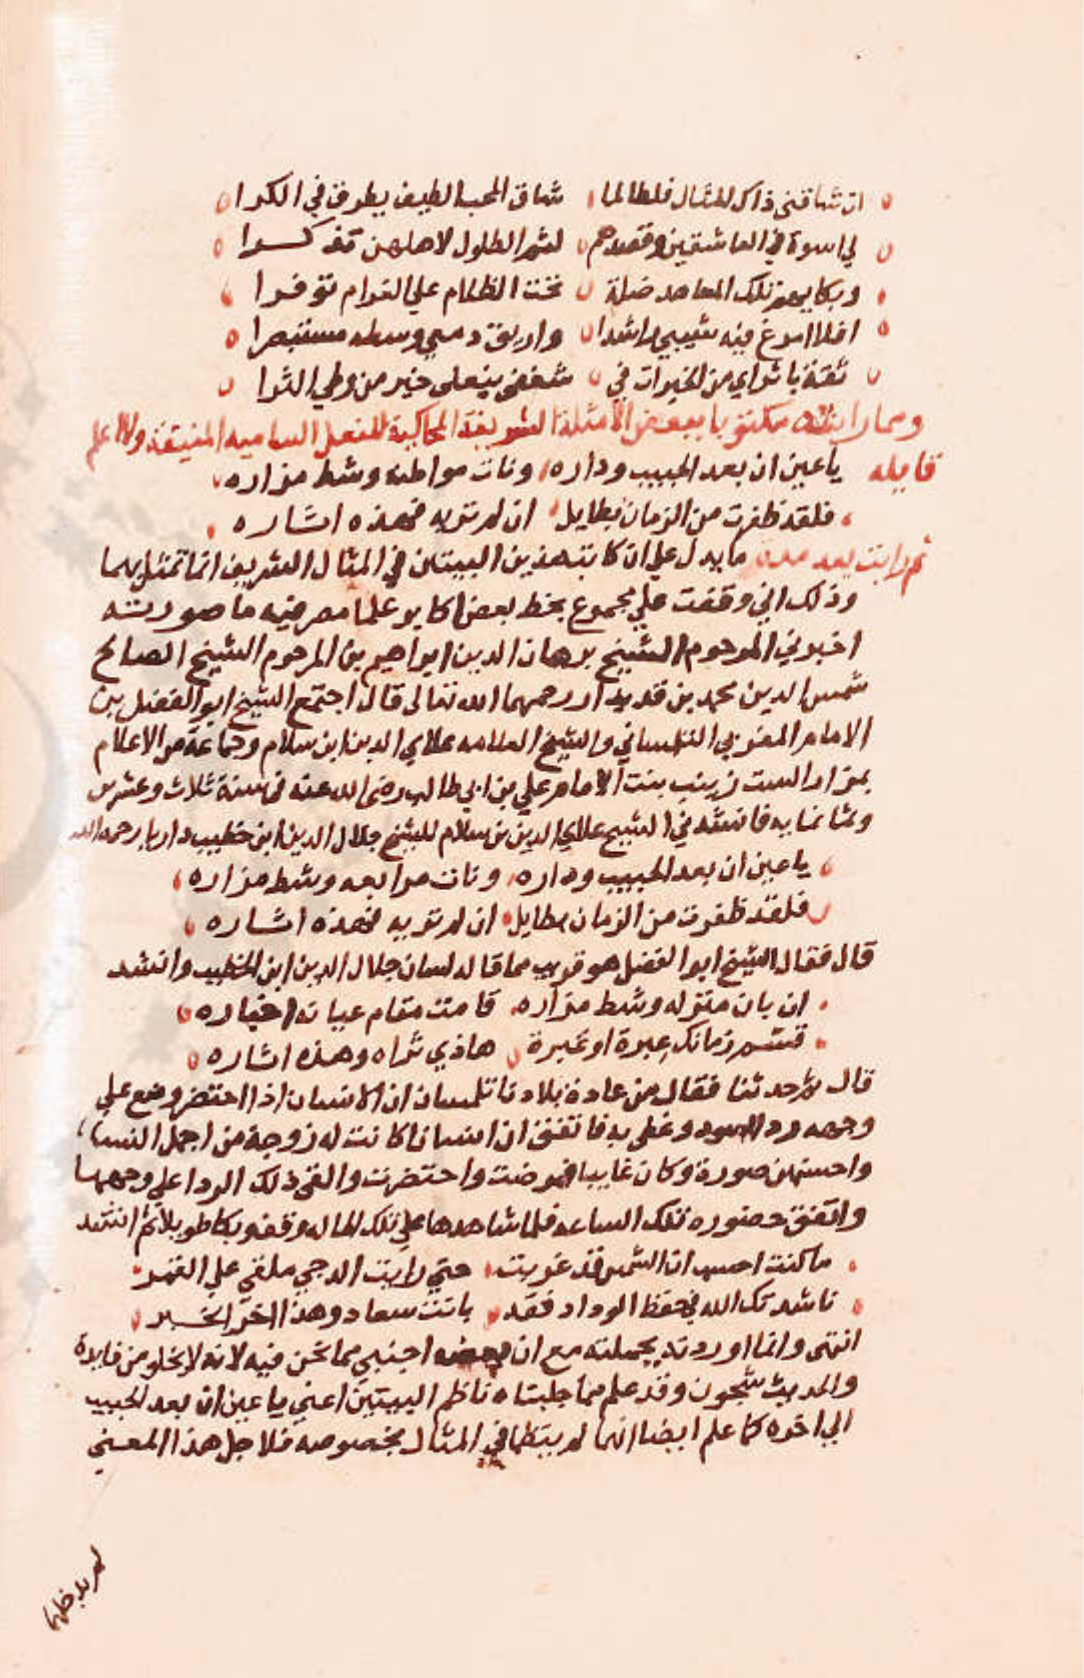 ان شاقني ذاك المثال فلطالما شاق المحب الطيف يطرق في الكرا
لي اسوة في العاشقين وقصدهم لثم الطلول لاهلهن تذكرا
وبكايهم تلك المعاهد ضلة تحت الظلام علي الغرام توفرا
افلا امرغ فيه شيبي راشدا واريق دمعي وسطه مستبصرا
ثقة باثراي من الخيرات في شغفي بنعلي خير من وطي الثرا
ومما رايته مكتوبا ببعض الأمثلة الشريفة المحاكية للنعل السامية المنيفة ولا اعلم
قايله ياعين ان بعد الحبيب وداره ونات مواطنه وشط مزاره
فلقد ظفرت من الزمان بطايل ان لم تريه فهذه اثاره
ثم رايت بعد مدة ما يدل علي ان كاتب هذين البيتين في المثال الشريف انما تمثل بهما
وذلك اني وقفت علي مجموع بخط بعض اكابر علما مصر فيه ما صورته
اخبرني المرحوم الشيخ برهان الدين ابراهيم بن المرحوم الشيخ الصالح
شمس الدين محمد بن قديدار رحمهما الله تعالى قال اجتمع الشيخ ابو الفضل بن
الامام المغربي التلمساني والشيخ العلامه علاي الدين ابن سلام وجماعة من الاعلام
بمزار الست زينب بنت الامام علي بن ابي طالب رضي الله عنه في سنة ثلاث وعشرين
وثمانمايه فانشدني الشيخ علاي الدين بن سلام للشيخ جلال الدين ابن خطيب داريا رحمه الله
ياعين ان بعد الحبيب وداره ونات مرابعه وشط مزاره
فلقد ظفرت من الزمان بطايل ان لم تريه فهذه اثاره
قال فقال الشيخ ابو الفضل هو قريب مما قاله لسان جلال الدين ابن الخطيب وانشد
ان بان منزله وشط مزاره قامت مقام عيانه اخباره
قسم زمانك عبرة او عبرة هاذي ثراه وهذه اثاره
قال ثم حدثنا فقال من عادة بلادنا تلمسان ان الانسان اذا احتضر وضع علي
وجهه ردا اسود وغطي به فاتفق ان انسانا كانت له زوجة من اجمل النسا
واحسنهن صورة وكان غايبا فمرضت واحتضرت والقي ذلك الردا علي وجهها
واتفق حضوره تلك الساعه فلما شاهدها علي تلك الحاله وقف وبكا طويلا ثم انشد
ما كنت احسب ان الشمس قد غربت حتي رايت الدجي ملقي علي القمر
ناشدتك الله في حفظ الوداد فقد باتت سعاد وهذا اخر الخبر
انتهى وانما اوردته بجملته مع ان بعضه اجنبي مما نحن فيه لانه لا يخلو من فايدة
والحديث شجون وقد علم مما جلبناه ناظم البيتين اعني ياعين ان بعد الحبيب
الي اخره كما علم ايضا انهما لم ينظما في المثال بخصوصه فلاجل هذا المعني
لم يدخلها